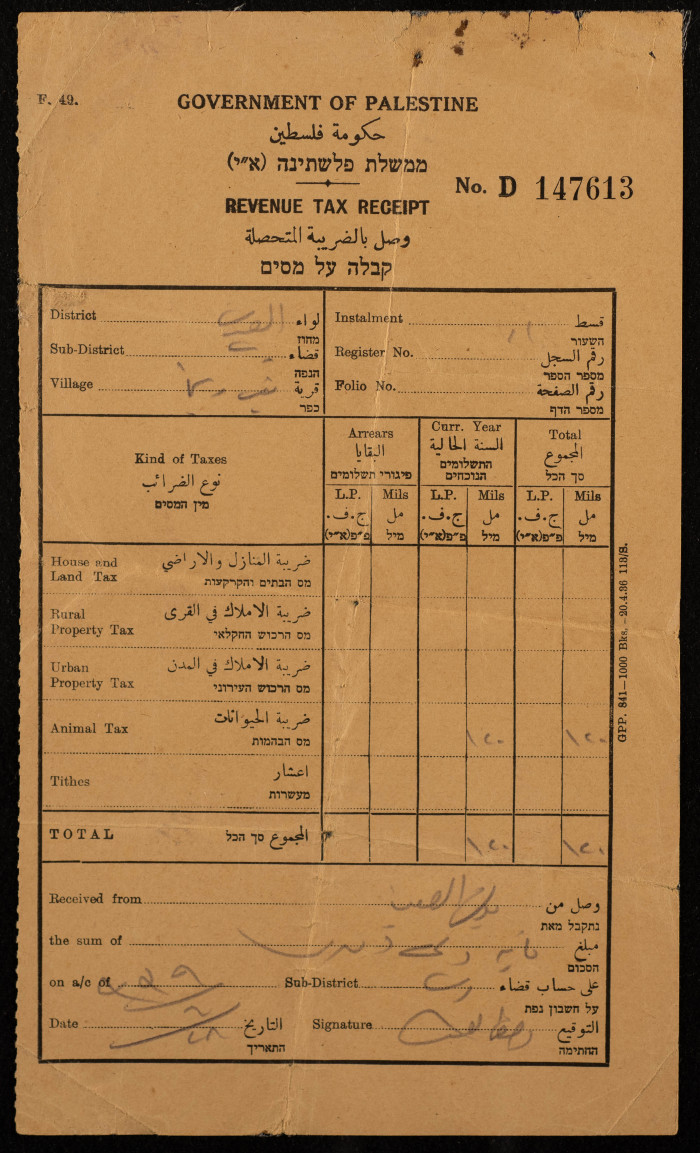 F. 49.
GOVERNMENT OF PALESTINE
حكومة فلسطين
ממשלת פלשתינה (א״י)
No. D 147613
REVENUE TAX RECEIPT
وصل بالضريبة المتحصلة
קבלה על מסים
District لواء
מחוז
Sub-District قضاء
הנפה
Village قرية
כפר
Instalment قسط
השעור
Register No. رقم السجل
מספר הספר
Folio No. رقم الصفحة
מספר הדף
Kind of Taxes
نوع الضرائب
מין המסים
Arrears
البقايا
פיגורי תשלומים
Curr. Year
السنة الحالية
התשלומים
הנוכחים
Total
المجموع
סך הכל
L.P. Mils L.P. Mils L.P. Mils
ج.ف. مل ج.ف. مل ج.ف. مل
פ״פ(א״י) מיל פ״פ(א״י) מיל פ״פ(א״י) מיל
House and ضريبة المنازل والاراضي
Land Tax מס הבתים והקרקעות
Rural ضريبة الاملاك في القرى
Property Tax מס הרכוש החקלאי
Urban ضريبة الاملاك في المدن
Property Tax מס הרכוש העירוני
ضريبة الحيوانات
Animal Tax ١٢٠ ١٢٠
מס הבהמות
اعشار
Tithes
מעשרות
TOTAL المجموع סך הכל ١٢٠ ١٢٠
Received from وصل من
נתקבל מאת
the sum of مبلغ
הסכום
on a/c of Sub-District على حساب قضاء
על חשבון נפת
Date التاريخ Signature التوقيع
התאריך החתימה
GPP. 841—1000 Bks.—20.4.36 113/S.